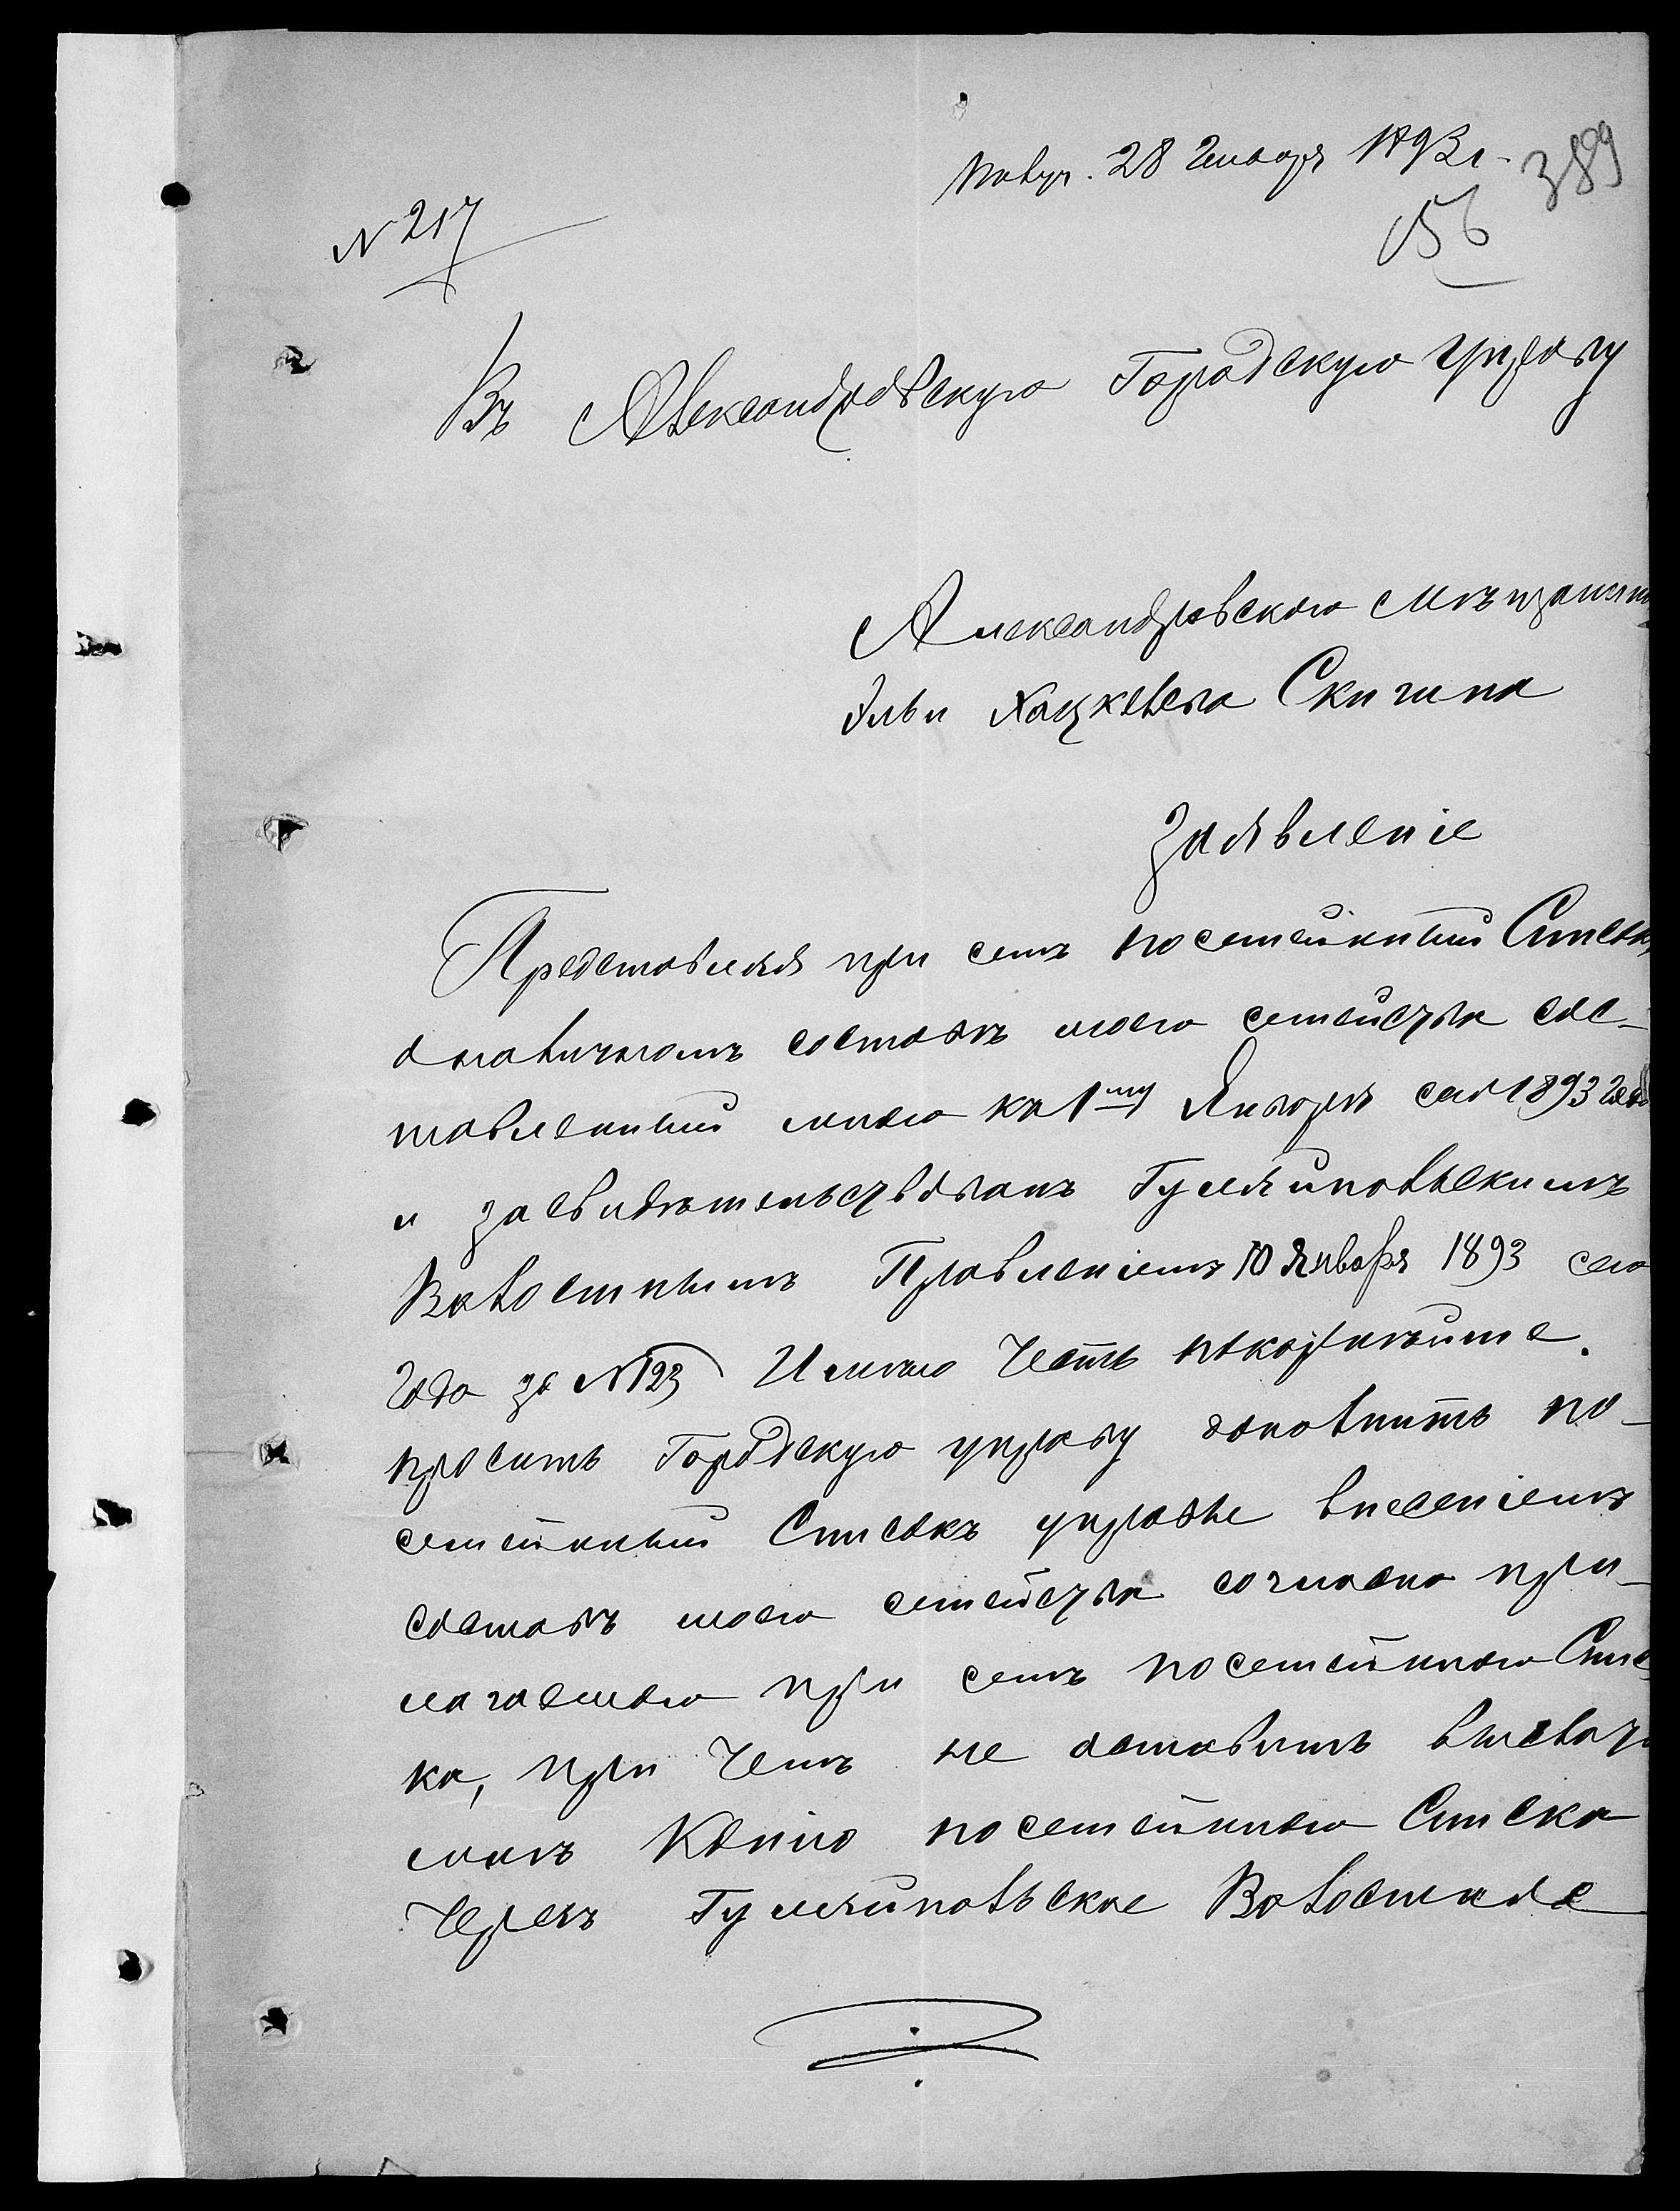 Получ. 28 Января 1893 г.
389
56
N 217
Въ Александровскую Городскую Управу
Александровского Мѣщанина
Эльи Хацкелева Скигина
Заявленіе
Представляя при семъ посемейный Списокъ
о наличномъ составѣ моего семейства сос-
тавленный мною къ 1му Января сего 1893 года
и засвидѣтельствованъ Гуляйпольскимъ
Волостнымъ Правленіемъ 10 января 1893 сего
года за N 123 Имѣю честь покорнѣйше
просить Городскую управу дополнить по-
семейный Списокъ управы внесеніемъ
составъ моего семейства согласно при-
лагаемого при семъ посемейного Спис-
ка, при чемъ не оставить выслать
мнѣ Копію посемейного Списка
Черезъ Гуляйпольское Волостное